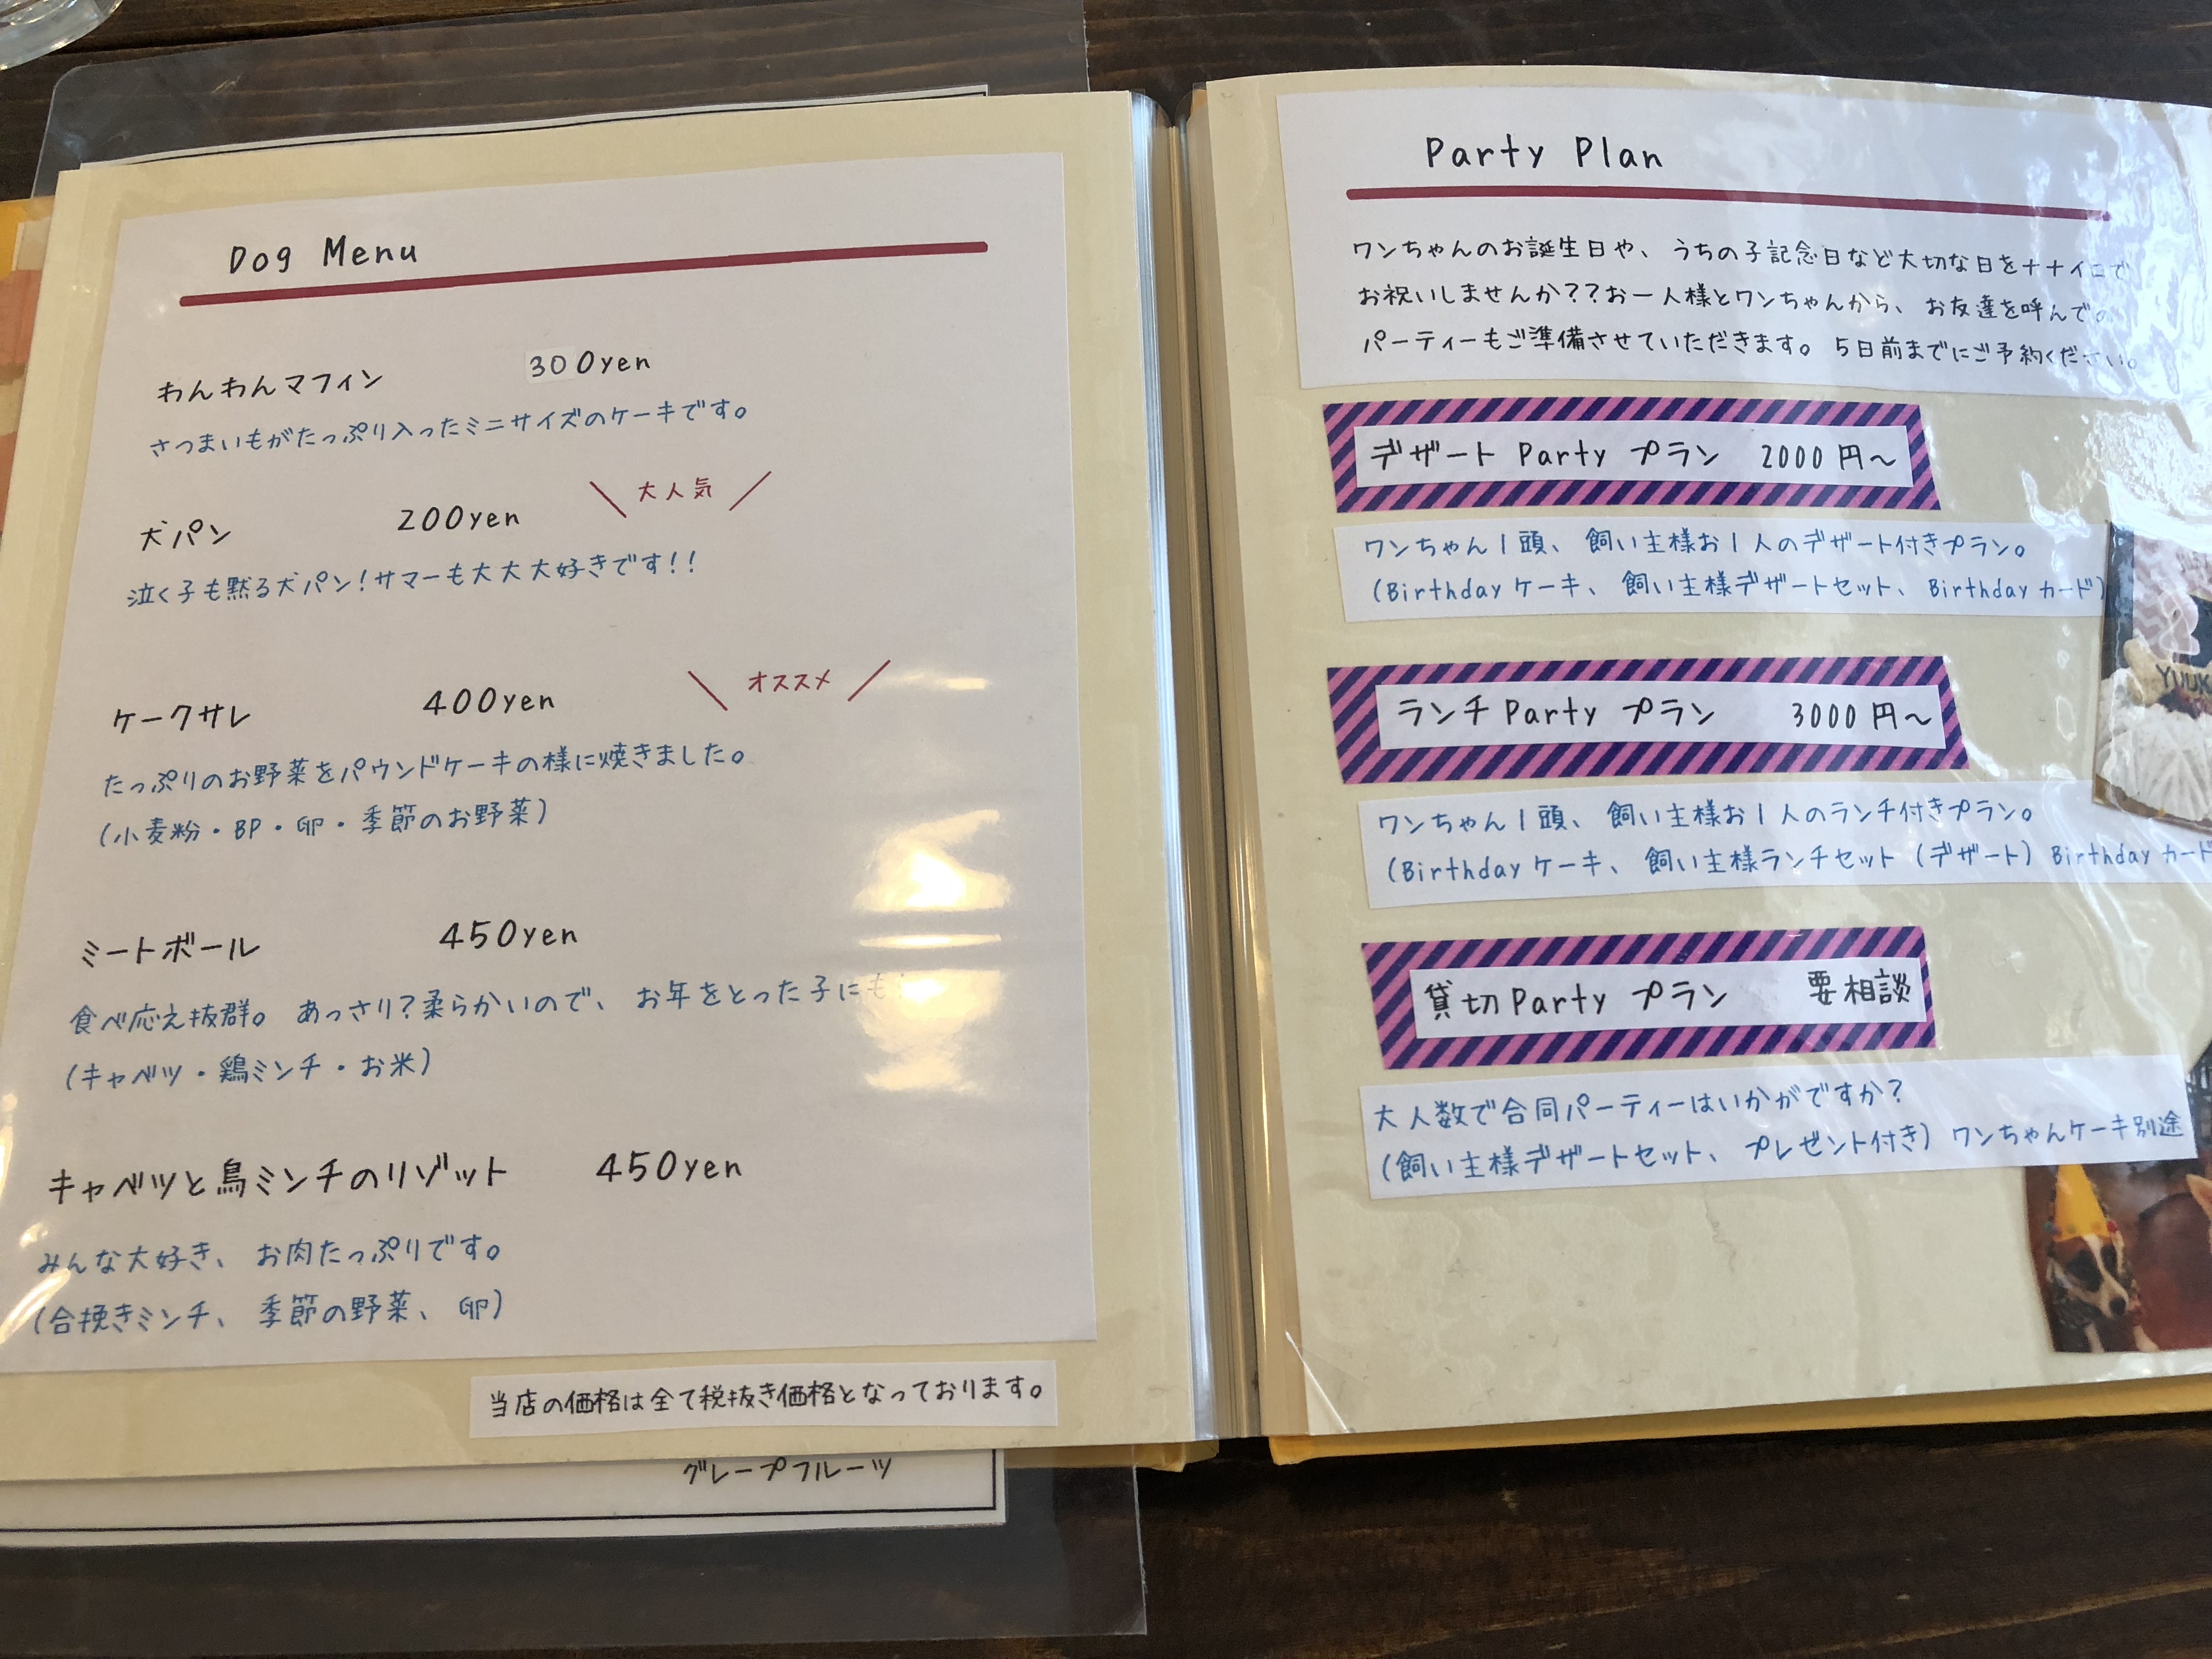 Dog Menu
わんわんマフィン 300yen
さつまいもがたっぷり入ったミニサイズのケーキです。
犬パン 200yen \ 大人気 /
泣く子も黙る犬パン!サマーも大大大好きです!!
ケークサレ 400yen \ オススメ /
たっぷりのお野菜をパウンドケーキの様に焼きました。
(小麦粉・BP・卵・季節のお野菜)
ミートボール 450yen
食べ応え抜群。あっさり?柔らかいので、お年をとった子にも!
(キャベツ・鶏ミンチ・お米)
キャベツと鳥ミンチのリゾット 450yen
みんな大好き、お肉たっぷりです。
(合挽きミンチ、季節の野菜、卵)
当店の価格は全て税抜き価格となっております。
グレープフルーツ
Party Plan
ワンちゃんのお誕生日や、うちの子記念日など大切な日をナナイロで
お祝いしませんか??お一人様とワンちゃんから、お友達を呼んで。
パーティーもご準備させていただきます。5日前までにご予約ください。
デザートPartyプラン 2000円〜
ワンちゃん1頭、飼い主様お1人のデザート付きプラン。
(Birthdayケーキ、飼い主様デザートセット、Birthdayカード)
ランチPartyプラン 3000円〜
ワンちゃん1頭、飼い主様お1人のランチ付きプラン。
(Birthdayケーキ、飼い主様ランチセット(デザート)Birthdayカード
貸切Partyプラン 要相談
大人数で合同パーティーはいかがですか?
(飼い主様デザートセット、プレゼント付き)ワンちゃんケーキ別途